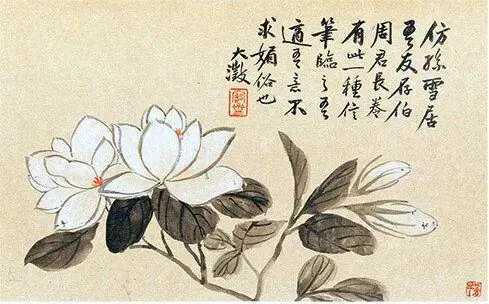 仿孫雪居
吾友存伯
周君長卷
有此一種信
筆臨之吾
適吾意不
求媚俗也
大澂